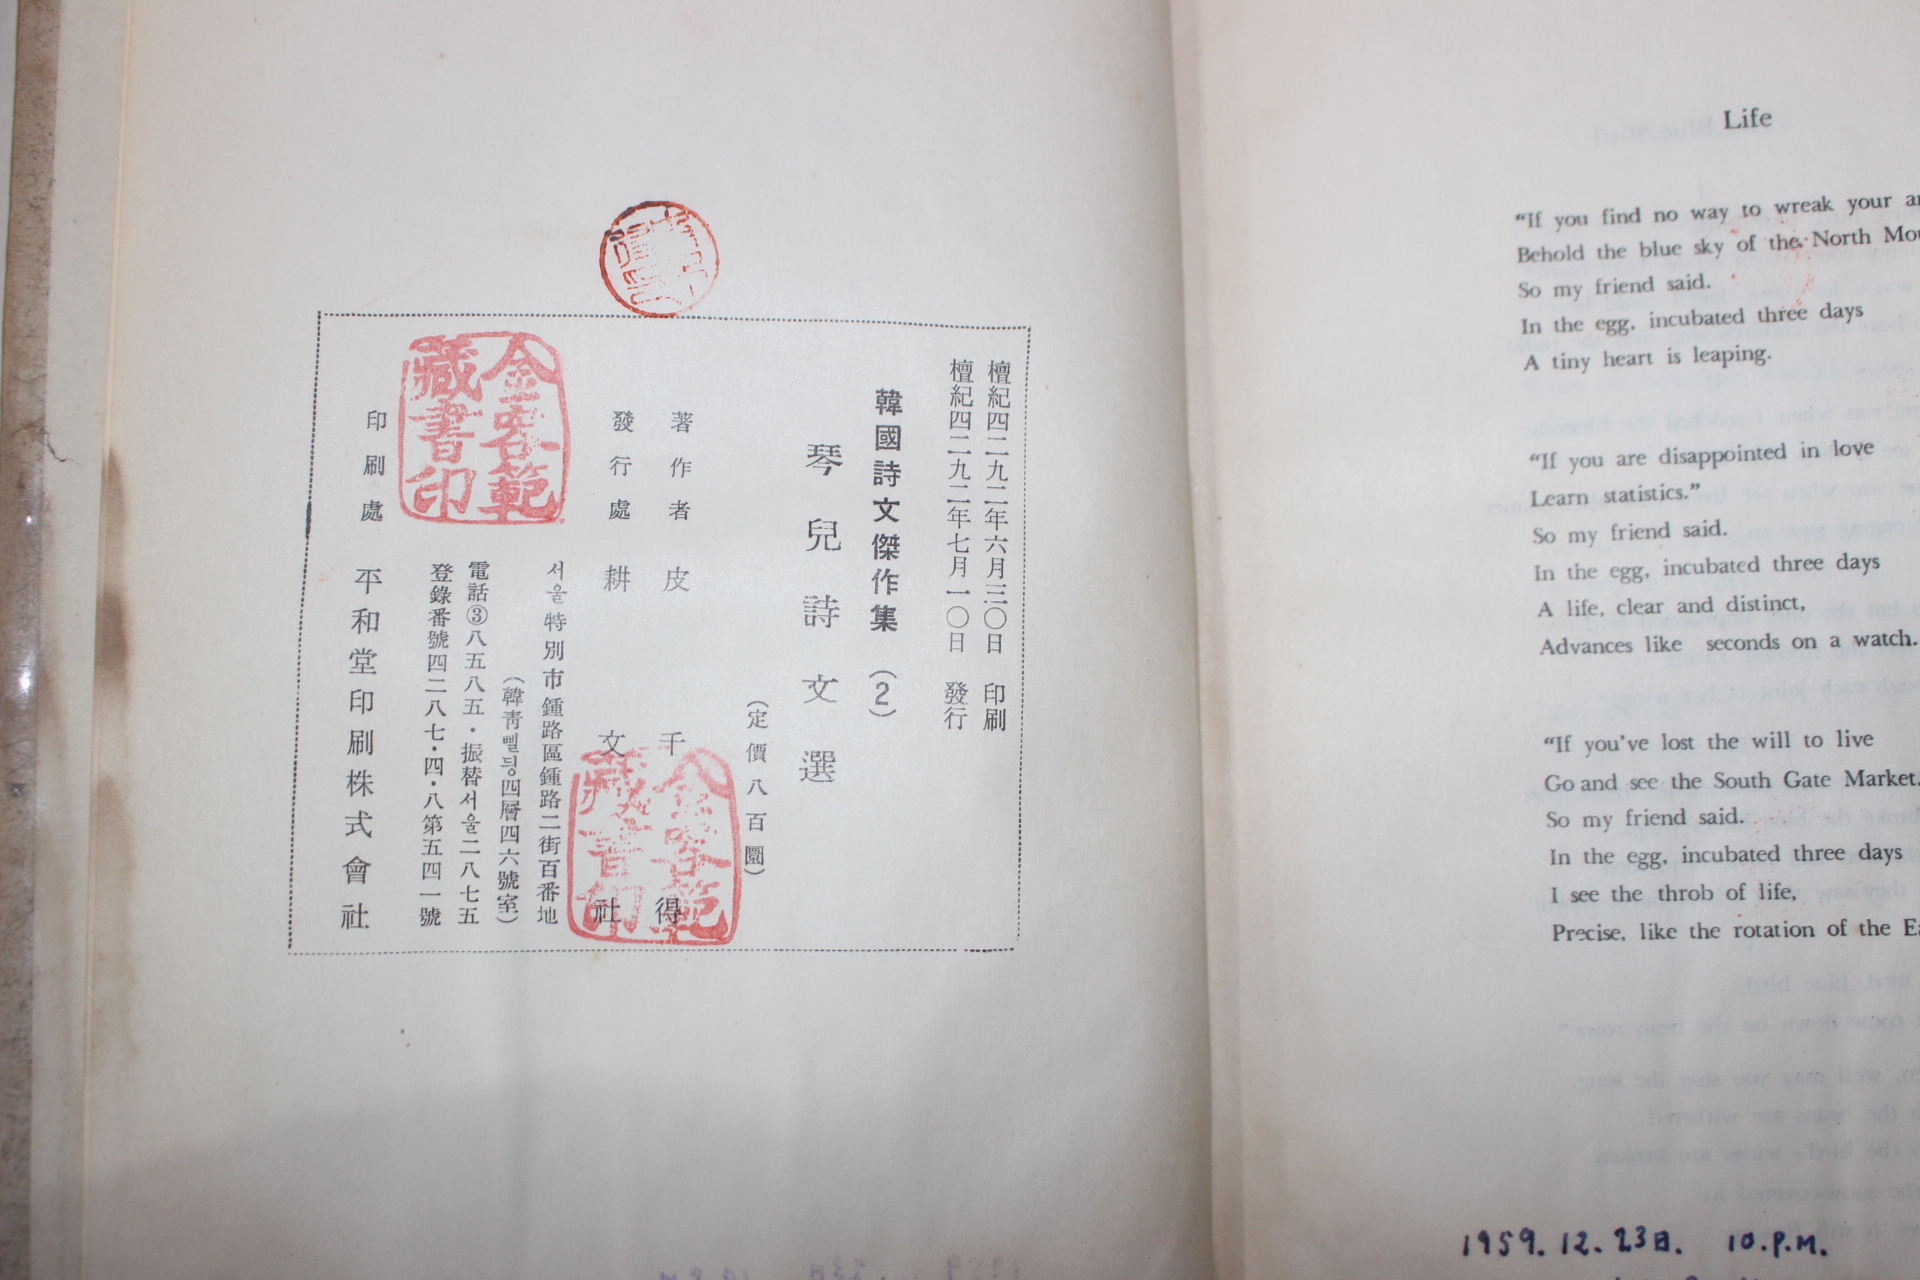 檀紀四二九二年六月三〇日 印刷
檀紀四二九二年七月一〇日 發行
韓國詩文傑作集(2)
琴兒詩文選
(定價八百圜)
著作者 皮千得
發行處 耕文社
서울特別市鍾路區鍾路二街百番地
(韓靑삘딍四層四六號室)
電話③八五八五・振替서울二八七五
登錄番號四二八七・四・八第五四一號
印刷處 平和堂印刷株式會社
金容範
藏書印
金容範
藏書印
Life
“If you find no way to wreak your
Behold the blue sky of the North
So my friend said.
In the egg, incubated three days
A tiny heart is leaping.
“If you are disappointed in love
Learn statistics.”
So my friend said.
In the egg, incubated three days
A life, clear and distinct,
Advances like seconds on a watch.
“If you've lost the will to live
Go and see the South Gate Market.
So my friend said.
In the egg, incubated three days
I see the throb of life,
Precise, like the rotation of the
1959. 12. 23日. 10.P.M.